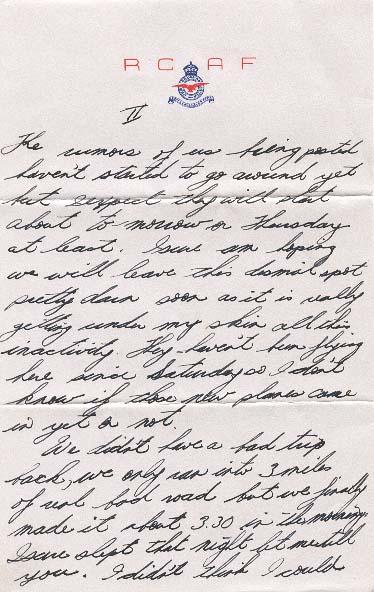 R C A F
II
The rumors of us being posted
haven't started to go around yet
but expect they will start
about to morrow or Thursday
at least. I sure am hoping
we will leave this dismal spot
pretty darn soon as it is really
getting under my skin all this
inactivity. They haven't been flying
here since Saturday so I don't
know if those new planes came
in yet or not.
We didn't have a bad trip
back, we only ran into 3 miles
of real bad road but we finally
made it about 3.30 in the morning.
I sure slept that night let me tell
you. I didn't think I could